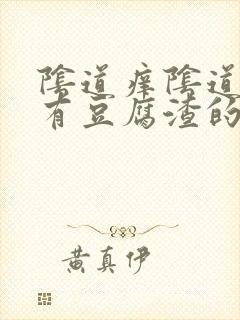 陰道痒陰道
有豆腐渣的
黄真伊